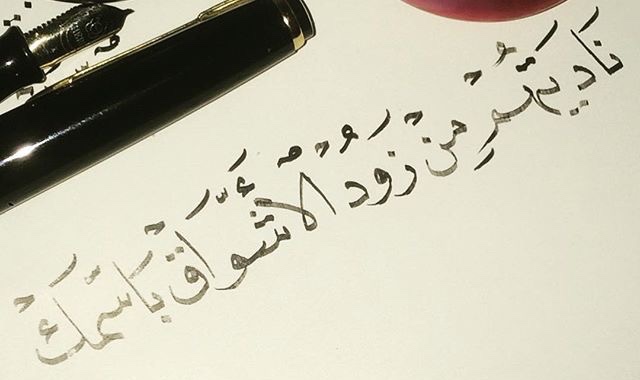 نَاديتهُم مِنْ زَودُ الُأشَّوَاق بَاسّمَكْ